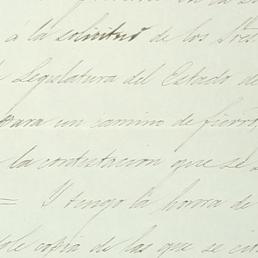 á la solicitud de los Sres
Legislatura del Estado de
para un camino de fierro,
la contestacion que se
= Y tengo la honra de
copia de las que se